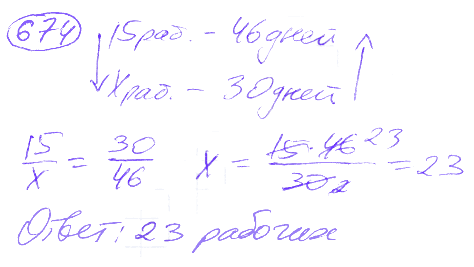 674 15 раб. – 46 дней
X раб. – 30 дней
15/X = 30/46 X = 15·46 23/30 2 = 23
Ответ: 23 рабочих